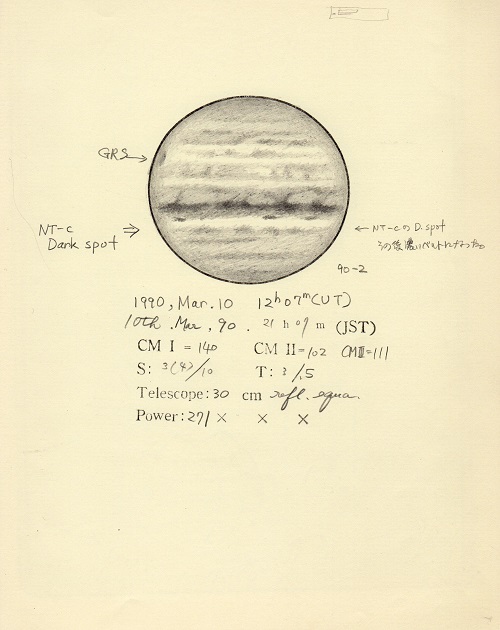 GRS →
NT-C ⇒
Dark spot
← NT-CのD.spot
その後濃いベルトになった。
90-2
1990, Mar. 10 12h07m(UT)
10th. Mar, 90. 21 h 07 m (JST)
CM I = 140 CM II=102 CMIII=111
S: 3(4)/10 T: 3/.5
Telescope:30 cm refl. equa.
Power:271× × ×